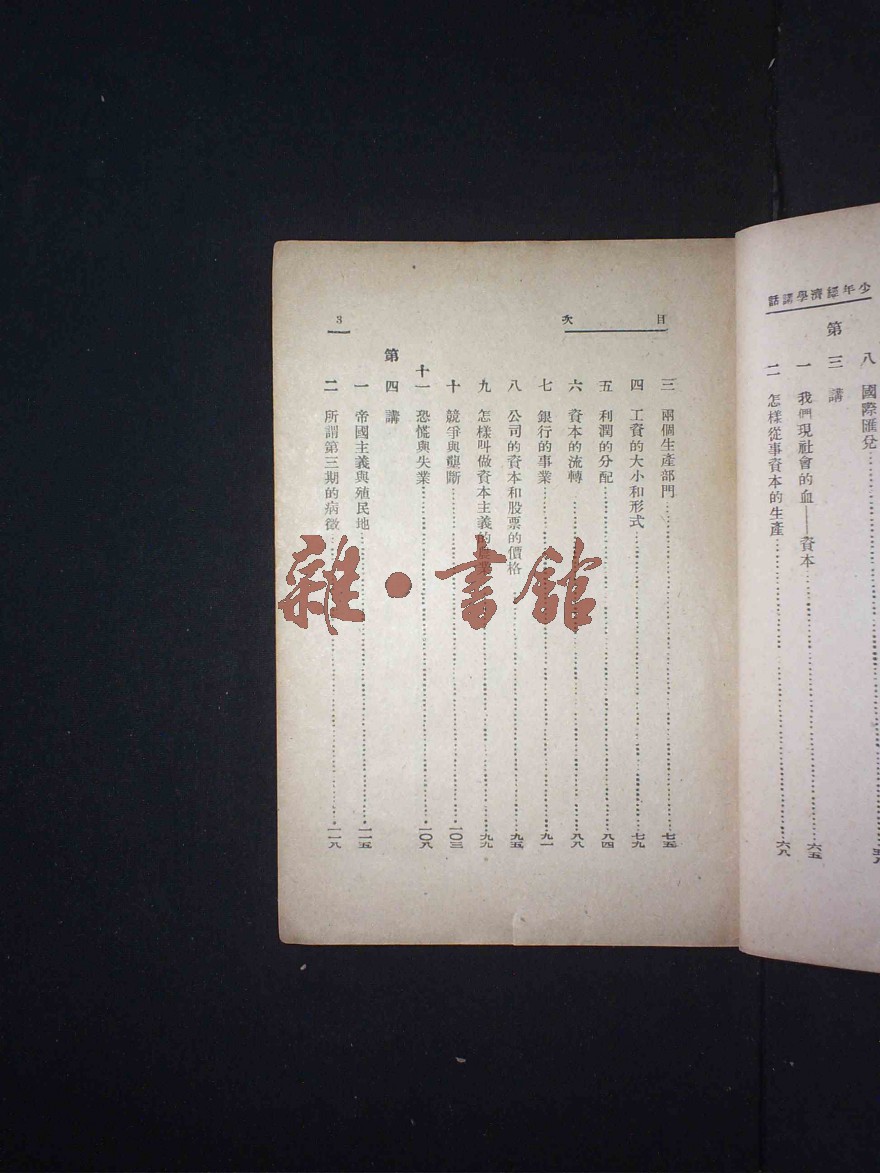 少年經濟學講話
八 國際匯兌……五八
第三講
一 我們現社會的血——資本……六五
二 怎樣從事資本的生產……六八
目次
3
三 兩個生產部門……七五
四 工資的大小和形式……七九
五 利潤的分配……八四
六 資本的流轉……八八
七 銀行的事業……九一
八 公司的資本和股票的價格……九五
九 怎樣叫做資本主義的農業……九九
十 競爭與壟斷……一〇三
十一 恐慌與失業……一〇八
第四講
一 帝國主義與殖民地……一一五
二 所謂第三期的病徵……一一八
雜·書館